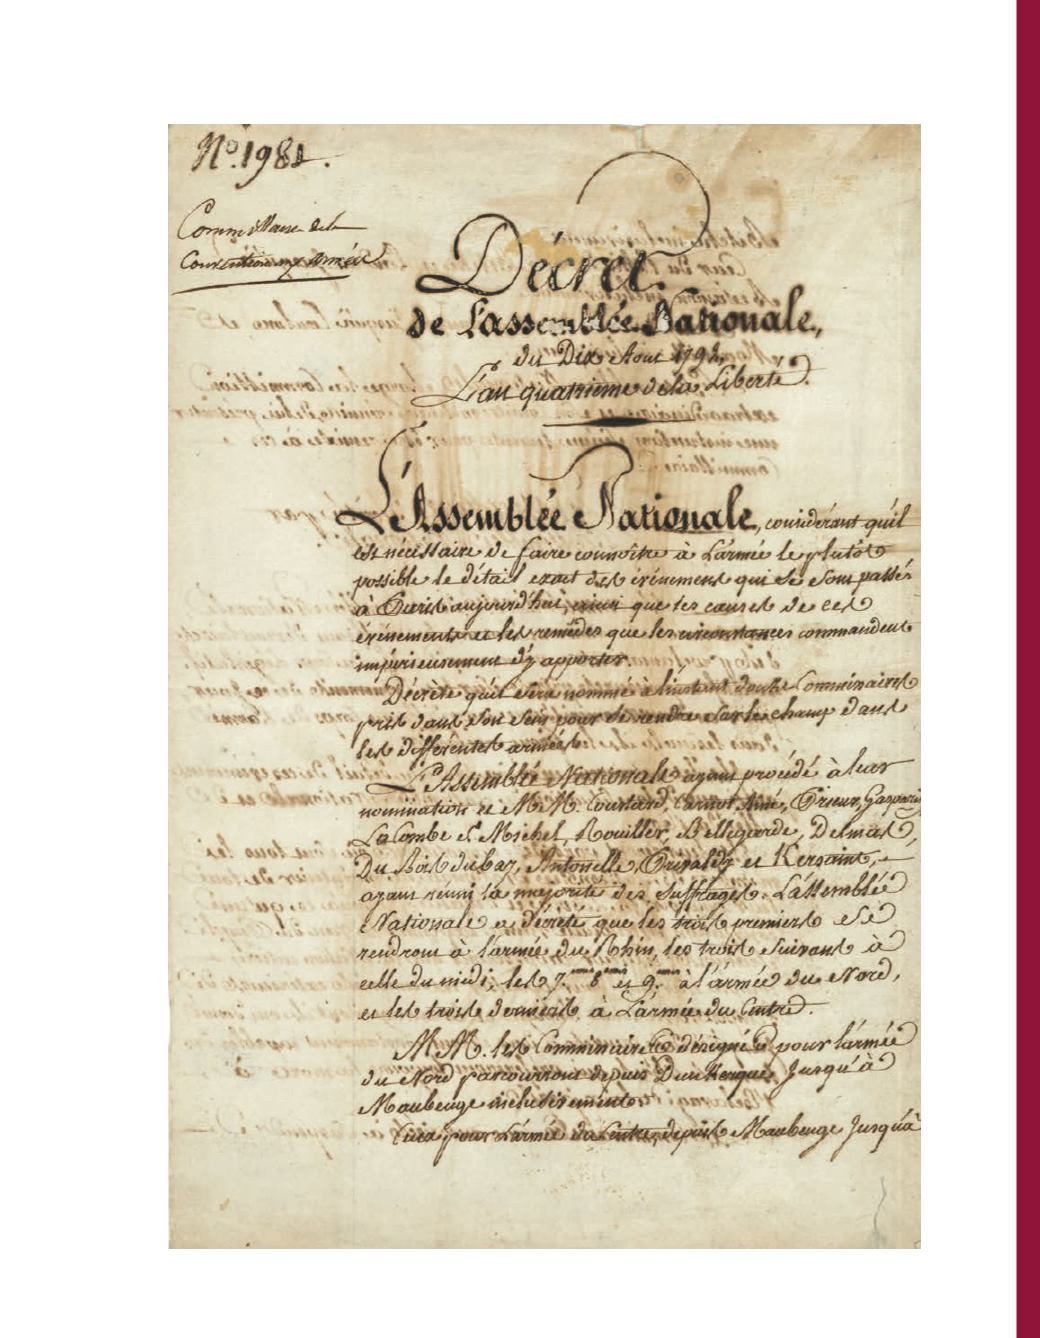 N.º 1981.
Commissaires de la
Convention aux Armées
Décret
de L'assemblée Nationale,
du Dix Aout 1792,
L'an quatrième de la Liberté.
L'Assemblée Nationale, considérant qu'il
est nécessaire de faire connoître à L'armée le plutôt
possible le détail exact des évènemens qui se sont passés
à Paris aujourd'hui, ainsi que les causes de ces
évènements et les remèdes que les circonstances commandent
impérieusement d'y apporter.
Décrète qu'il sera nommé à l'instant douze Commissaires
pris dans son sein pour se rendre sur le champ dans
les différentes armées.
L'Assemblée Nationale ayant procédé à leur
nomination et M.M. Coustard, Carnot Ainé, Prieur, Gasparin,
La Combe S.t Michel, Rouiller, Bellegarde, Delmas,
Du Bois dubay, Antonelle, Peraldy et Kersaint,
ayant réuni la majorité des suffrages. L'Assemblée
Nationale a décrété que les trois premiers se
rendront à l'armée du Rhin, les trois suivans à
celle du midi, les 7.eme 8.eme et 9.eme à l'armée du Nord,
et les trois derniers à L'armée du Centre.
M M. les Commissaires désignés pour l'armée
du Nord parcourront depuis Dunkerque Jusqu'à
Maubeuge inclusivement.
Ceux pour L'armée du Centre, depuis Maubeuge Jusqu'à